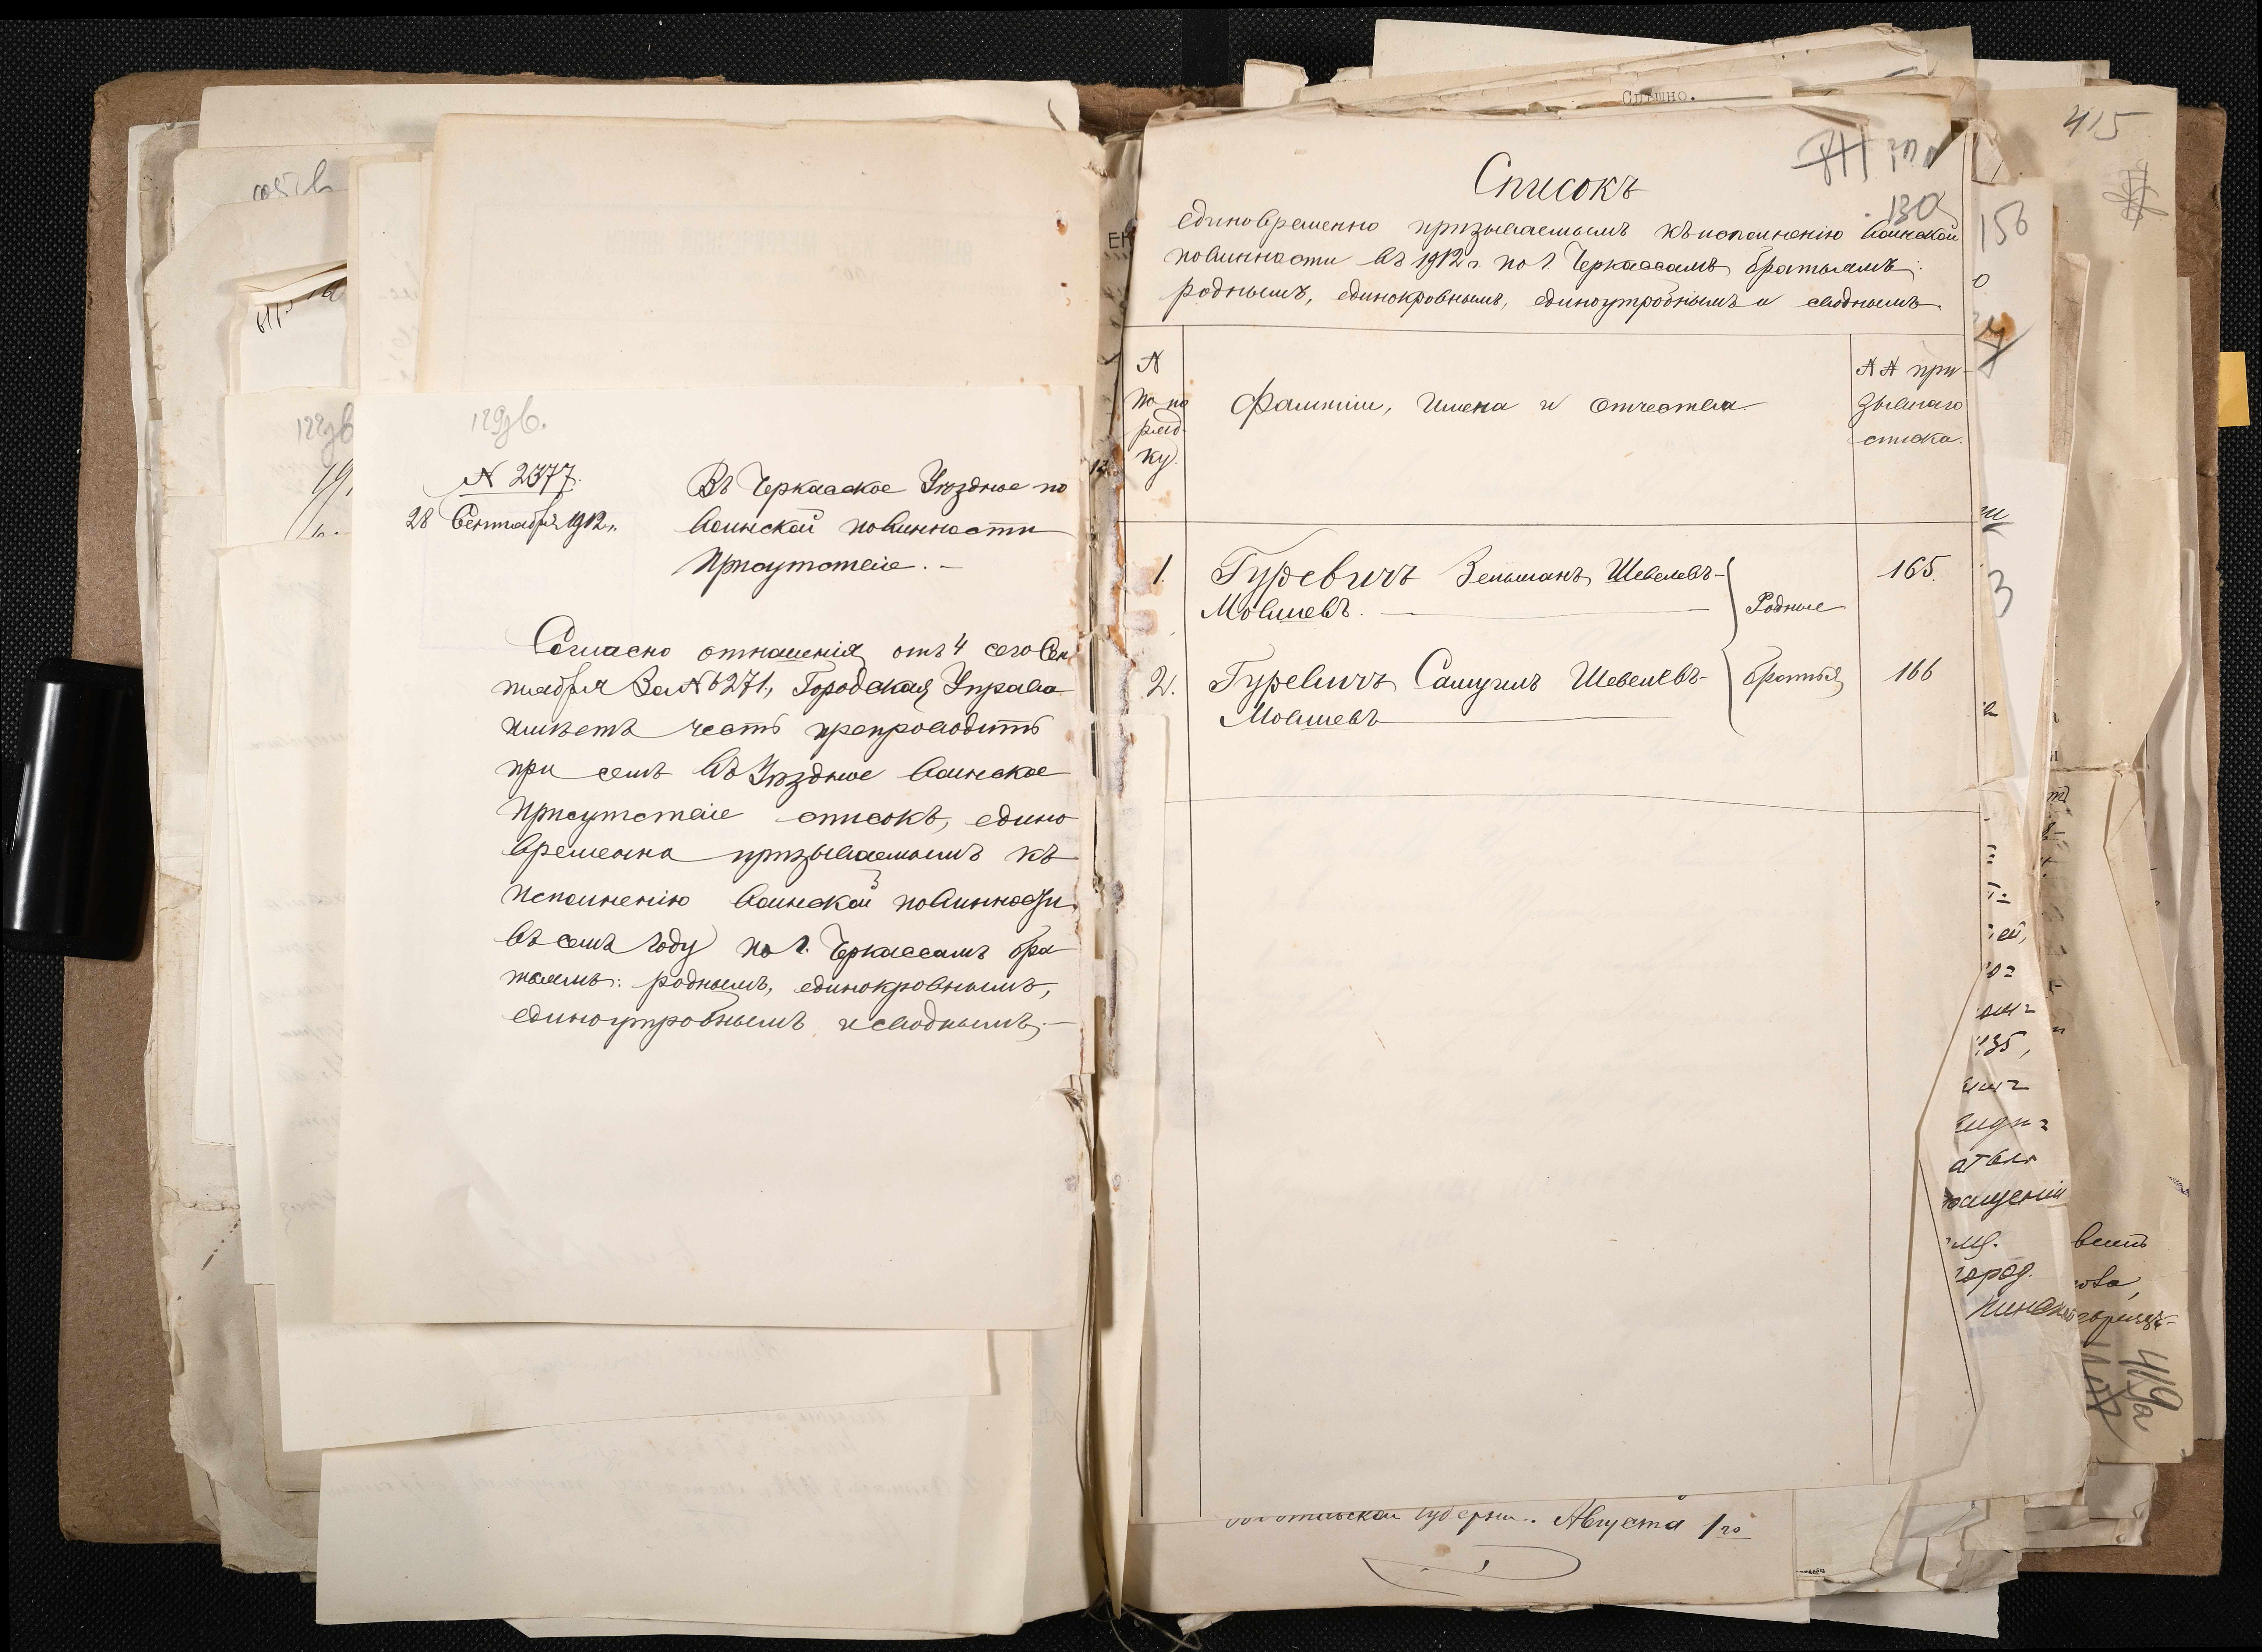 129зв.
№ 2377.
28 Сентября 1912 г.
Въ Черкасское Уѣздное по
воинской повинности
Присутствіе. —
Согласно отношенія отъ 4 сего Сен
тября за № 6271, Городская Управа
имѣетъ честь препроводить
при семъ въ Уѣздное воинское
Присутствіе списокъ, едино
временно призываемымъ къ
исполненію воинской повинности
въ семъ году по г. Черкассамъ бра
тьямъ: роднымъ, единокровнымъ,
единоутробнымъ и своднымъ. —
Спѣшно.
Списокъ
130
единовременно призываемымъ къ исполненію воинской
повинности въ 1912 г. по г. Черкассамъ братьямъ:
роднымъ, единокровнымъ, единоутробнымъ и своднымъ
№
по по
ряд-
ку.
Фамиліи, Имена и Отчества
№№ при-
зывнаго
списка.
1. Гуревичъ Зельманъ Шевелевъ- 165.
Мовшевъ. Родные
2. Гуревичъ Самуилъ Шевелевъ- братья 166
Мовшевъ
губерніи. Августа 1го
415
156
3
135,
город.
419а